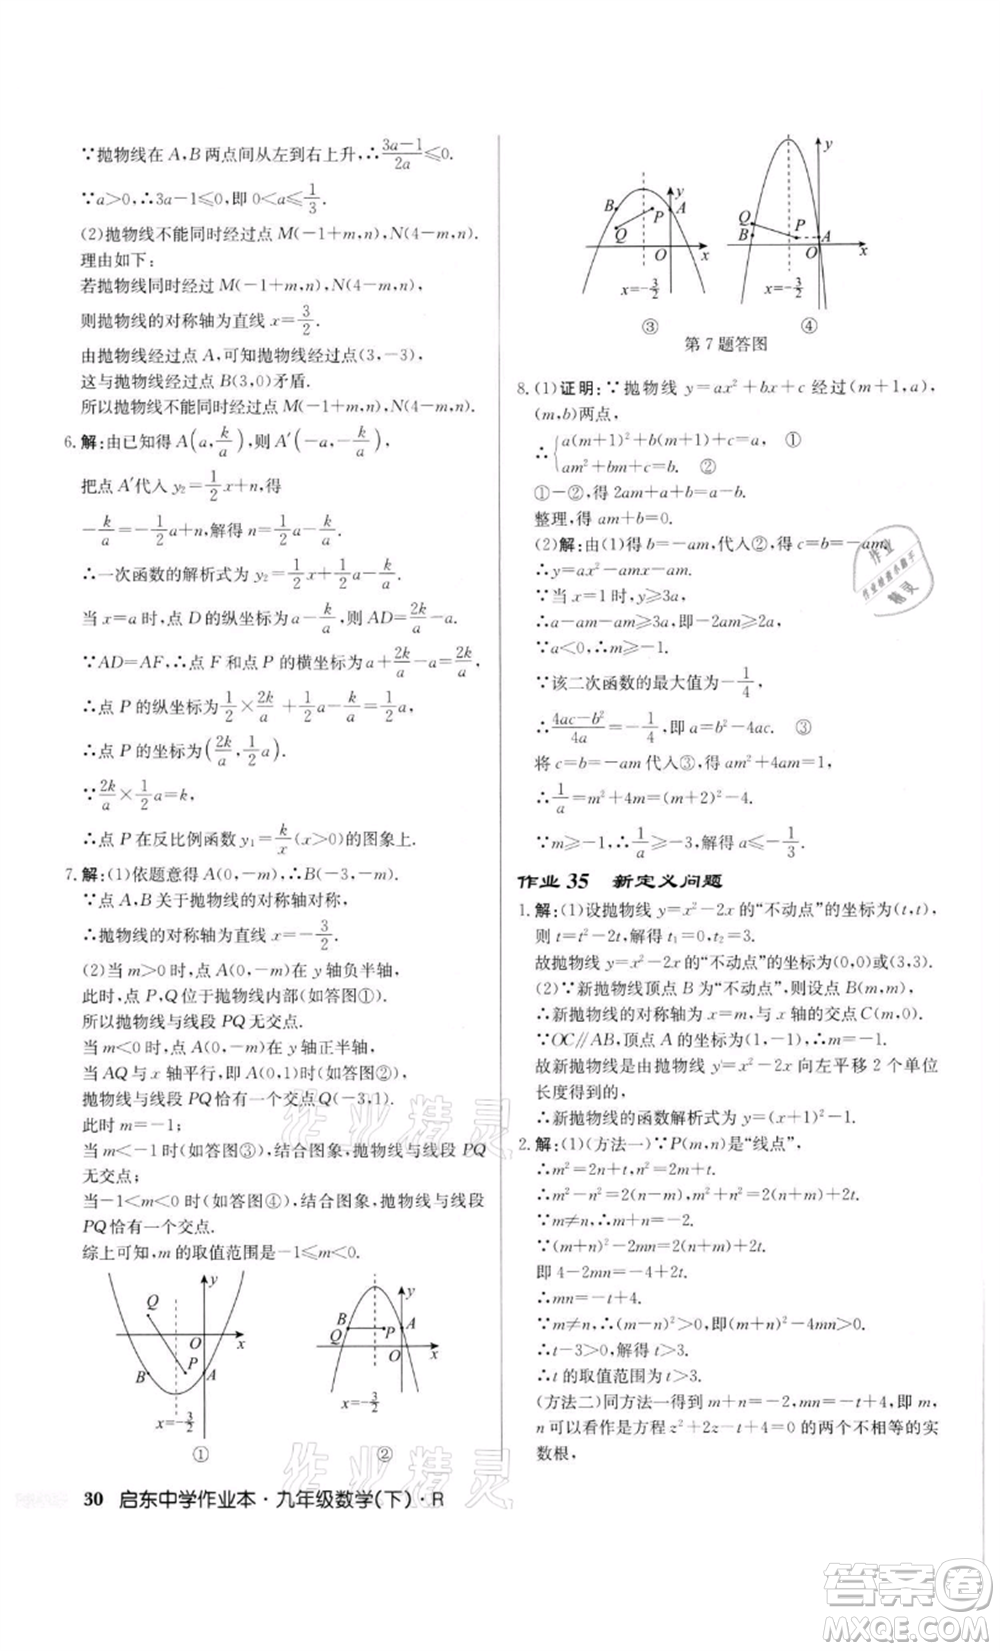 ∵抛物线在 A,B 两点间从左到右上升,∴(3a-1)/(2a)≤0.
∵a>0,∴3a-1≤0,即 0<a≤1/3.
(2)抛物线不能同时经过点 M(-1+m,n),N(4-m,n).
理由如下:
若抛物线同时经过 M(-1+m,n),N(4-m,n),
则抛物线的对称轴为直线 x=3/2.
由抛物线经过点 A,可知抛物线经过点(3,-3),
这与抛物线经过点 B(3,0)矛盾.
所以抛物线不能同时经过点 M(-1+m,n),N(4-m,n).
6.解:由已知得 A(a,k/a),则 A′(-a,-k/a),
把点 A′代入 y₂=1/2x+n,得
-k/a=-1/2a+n,解得 n=1/2a-k/a.
∴一次函数的解析式为 y₂=1/2x+1/2a-k/a.
当 x=a 时,点 D 的纵坐标为 a-k/a,则 AD=2k/a-a.
∵AD=AF,∴点 F 和点 P 的横坐标为 a+2k/a-a=2k/a,
∴点 P 的纵坐标为1/2×2k/a+1/2a-k/a=1/2a.
∴点 P 的坐标为(2k/a,1/2a).
∵2k/a×1/2a=k,
∴点 P 在反比例函数 y₁=k/x(x>0)的图象上.
7.解:(1)依题意得 A(0,-m),∴B(-3,-m).
∵点 A,B 关于抛物线的对称轴对称,
∴抛物线的对称轴为直线 x=-3/2.
(2)当 m>0 时,点 A(0,-m)在 y 轴负半轴,
此时,点 P,Q 位于抛物线内部(如答图①).
所以抛物线与线段 PQ 无交点.
当 m<0 时,点 A(0,-m)在 y 轴正半轴,
当 AQ 与 x 轴平行,即 A(0,1)时(如答图②),
抛物线与线段 PQ 恰有一个交点 Q(-3,1).
此时 m=-1;
当 m<-1 时(如答图③),结合图象,抛物线与线段 PQ
无交点;
当-1<m<0 时(如答图④),结合图象,抛物线与线段
PQ 恰有一个交点.
综上可知,m 的取值范围是-1≤m<0.
Q y O x B P A x=-3/2 ①
y B A Q P O x x=-3/2 ②
30 启东中学作业本·九年级数学(下)·R
y B P A Q O x x=-3/2 ③
y Q P B A O x x=-3/2 ④
第 7 题答图
8.(1)证明:∵抛物线 y=ax²+bx+c 经过(m+1,a),
(m,b)两点,
∴{a(m+1)²+b(m+1)+c=a, ①
am²+bm+c=b. ②
①-②,得 2am+a+b=a-b.
整理,得 am+b=0.
(2)解:由(1)得 b=-am,代入②,得 c=b=-am.
∴y=ax²-amx-am.
∵当 x=1 时,y≥3a,
∴a-am-am≥3a,即-2am≥2a.
∵a<0,∴m≥-1.
∵该二次函数的最大值为-1/4,
∴(4ac-b²)/(4a)=-1/4,即 a=b²-4ac. ③
将 c=b=-am 代入③,得 am²+4am=1,
∴1/a=m²+4m=(m+2)²-4.
∵m≥-1,∴1/a≥-3,解得 a≤-1/3.
作业 35 新定义问题
1.解:(1)设抛物线 y=x²-2x 的“不动点”的坐标为(t,t),
则 t=t²-2t,解得 t₁=0,t₂=3.
故抛物线 y=x²-2x 的“不动点”的坐标为(0,0)或(3,3).
(2)∵新抛物线顶点 B 为“不动点”,则设点 B(m,m),
∴新抛物线的对称轴为 x=m,与 x 轴的交点 C(m,0).
∵OC∥AB,顶点 A 的坐标为(1,-1),∴m=-1.
故新抛物线是由抛物线 y=x²-2x 向左平移 2 个单位
长度得到的,
∴新抛物线的函数解析式为 y=(x+1)²-1.
2.解:(1)(方法一)∵P(m,n)是“线点”,
∴m²=2n+t,n²=2m+t.
∴m²-n²=2n-2m,m²+n²=2m+2n+2t.
∵m≠n,∴m+n=-2.
∵(m+n)²-2mn=2(m+n)+2t.
即 4-2mn=-4+2t.
∴mn=-t+4.
∵m≠n,∴(m-n)²>0,∴m²-2mn+n²>0.
∴t-3>0,∴t>3.
∴t 的取值范围为 t>3.
(方法二)同方法一得到 m+n=-2,mn=-t+4,所以 m,
n 可以看作是方程 z²+2z-t+4=0 的两个不相等的实
数根,
作业精灵
作业精灵
作业
作业检查小助手
精灵
答案卷
MXQE.COM